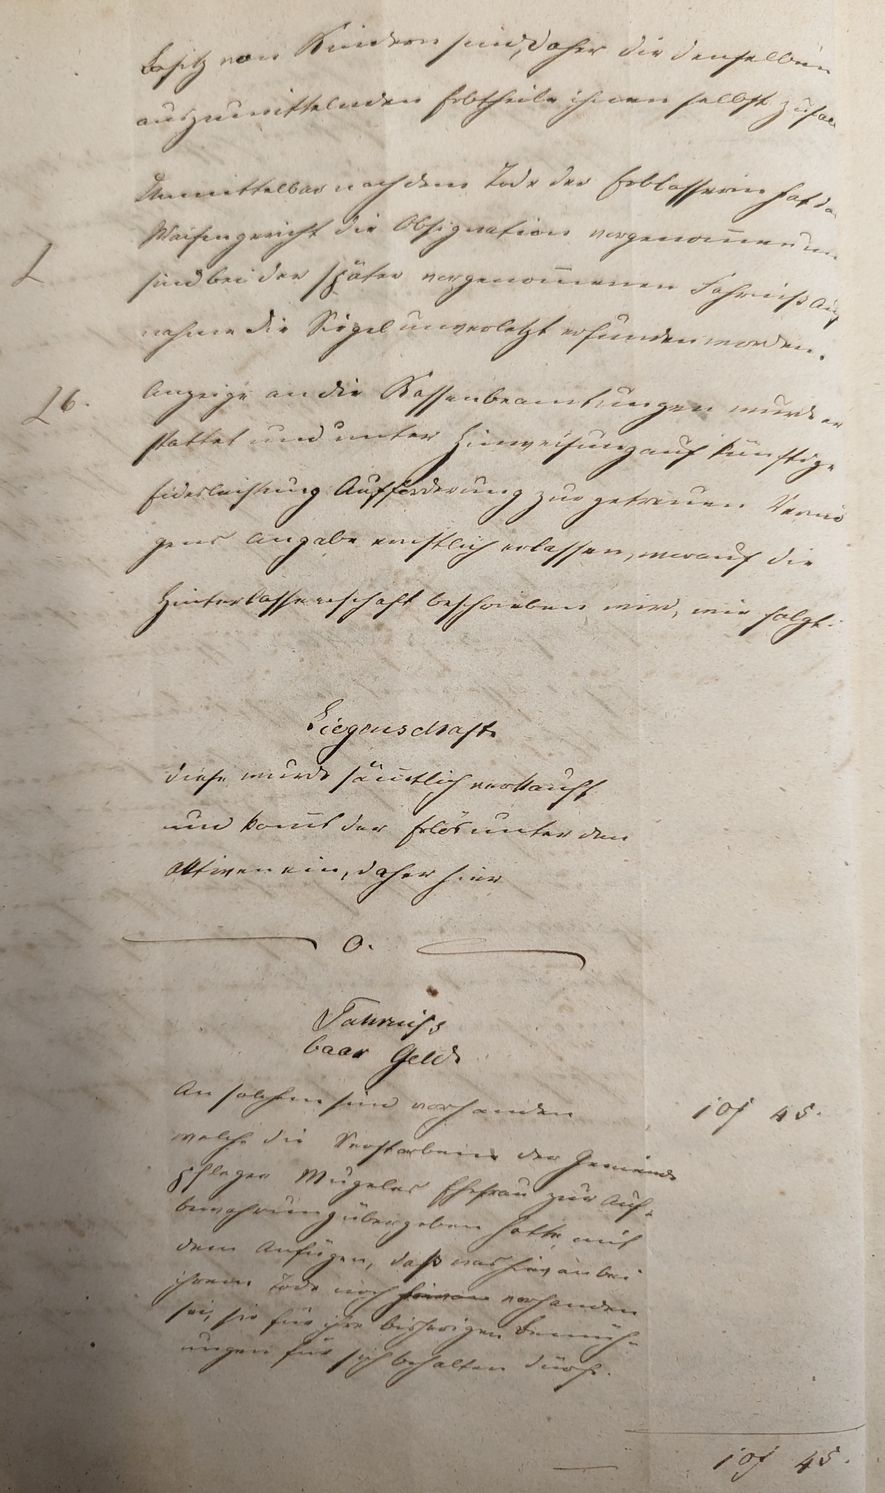 Besitz von Kindern sind, daher die denselben
auszumittelnden Erbtheile ihnen selbst zufal
Unmittelbar nach dem Tode der Erblasserin hat da
Waisengericht die Obsignation vorgenommen un
sind bei der später vorgenommenen Fahrniß Auf
nahme die Sigel unverletzt erfunden worden.
26.
Anzeige an die Kassenbeamtungen wurde er
stattet und unter Hinweisung auf künftige
Eidesleistung Aufforderung zur getreuen Vermö
gens Angabe ernstlich erlassen, worauf die
Hinterlassenschaft beschrieben wird, wie folgt:
Liegenschaft.
diese wurde sämtlich verkauft
und komt der Erlös unter den
Aktiven ein, daher hier
0.
Fahrniß
baar Geld
An solchem sind vorhanden 10f 45.
welche die Verstorbene der Gemeinde
pfleger Mugeles Ehefrau zur Auf-
bewahrung übergeben hatte, mit
dem Anfügen, daß was hievon bei
ihrem Tode noch hievon vorhanden
sei, sie für ihre bisherigen Bemüh-
ungen für sich behalten dürfe.
10f 45.